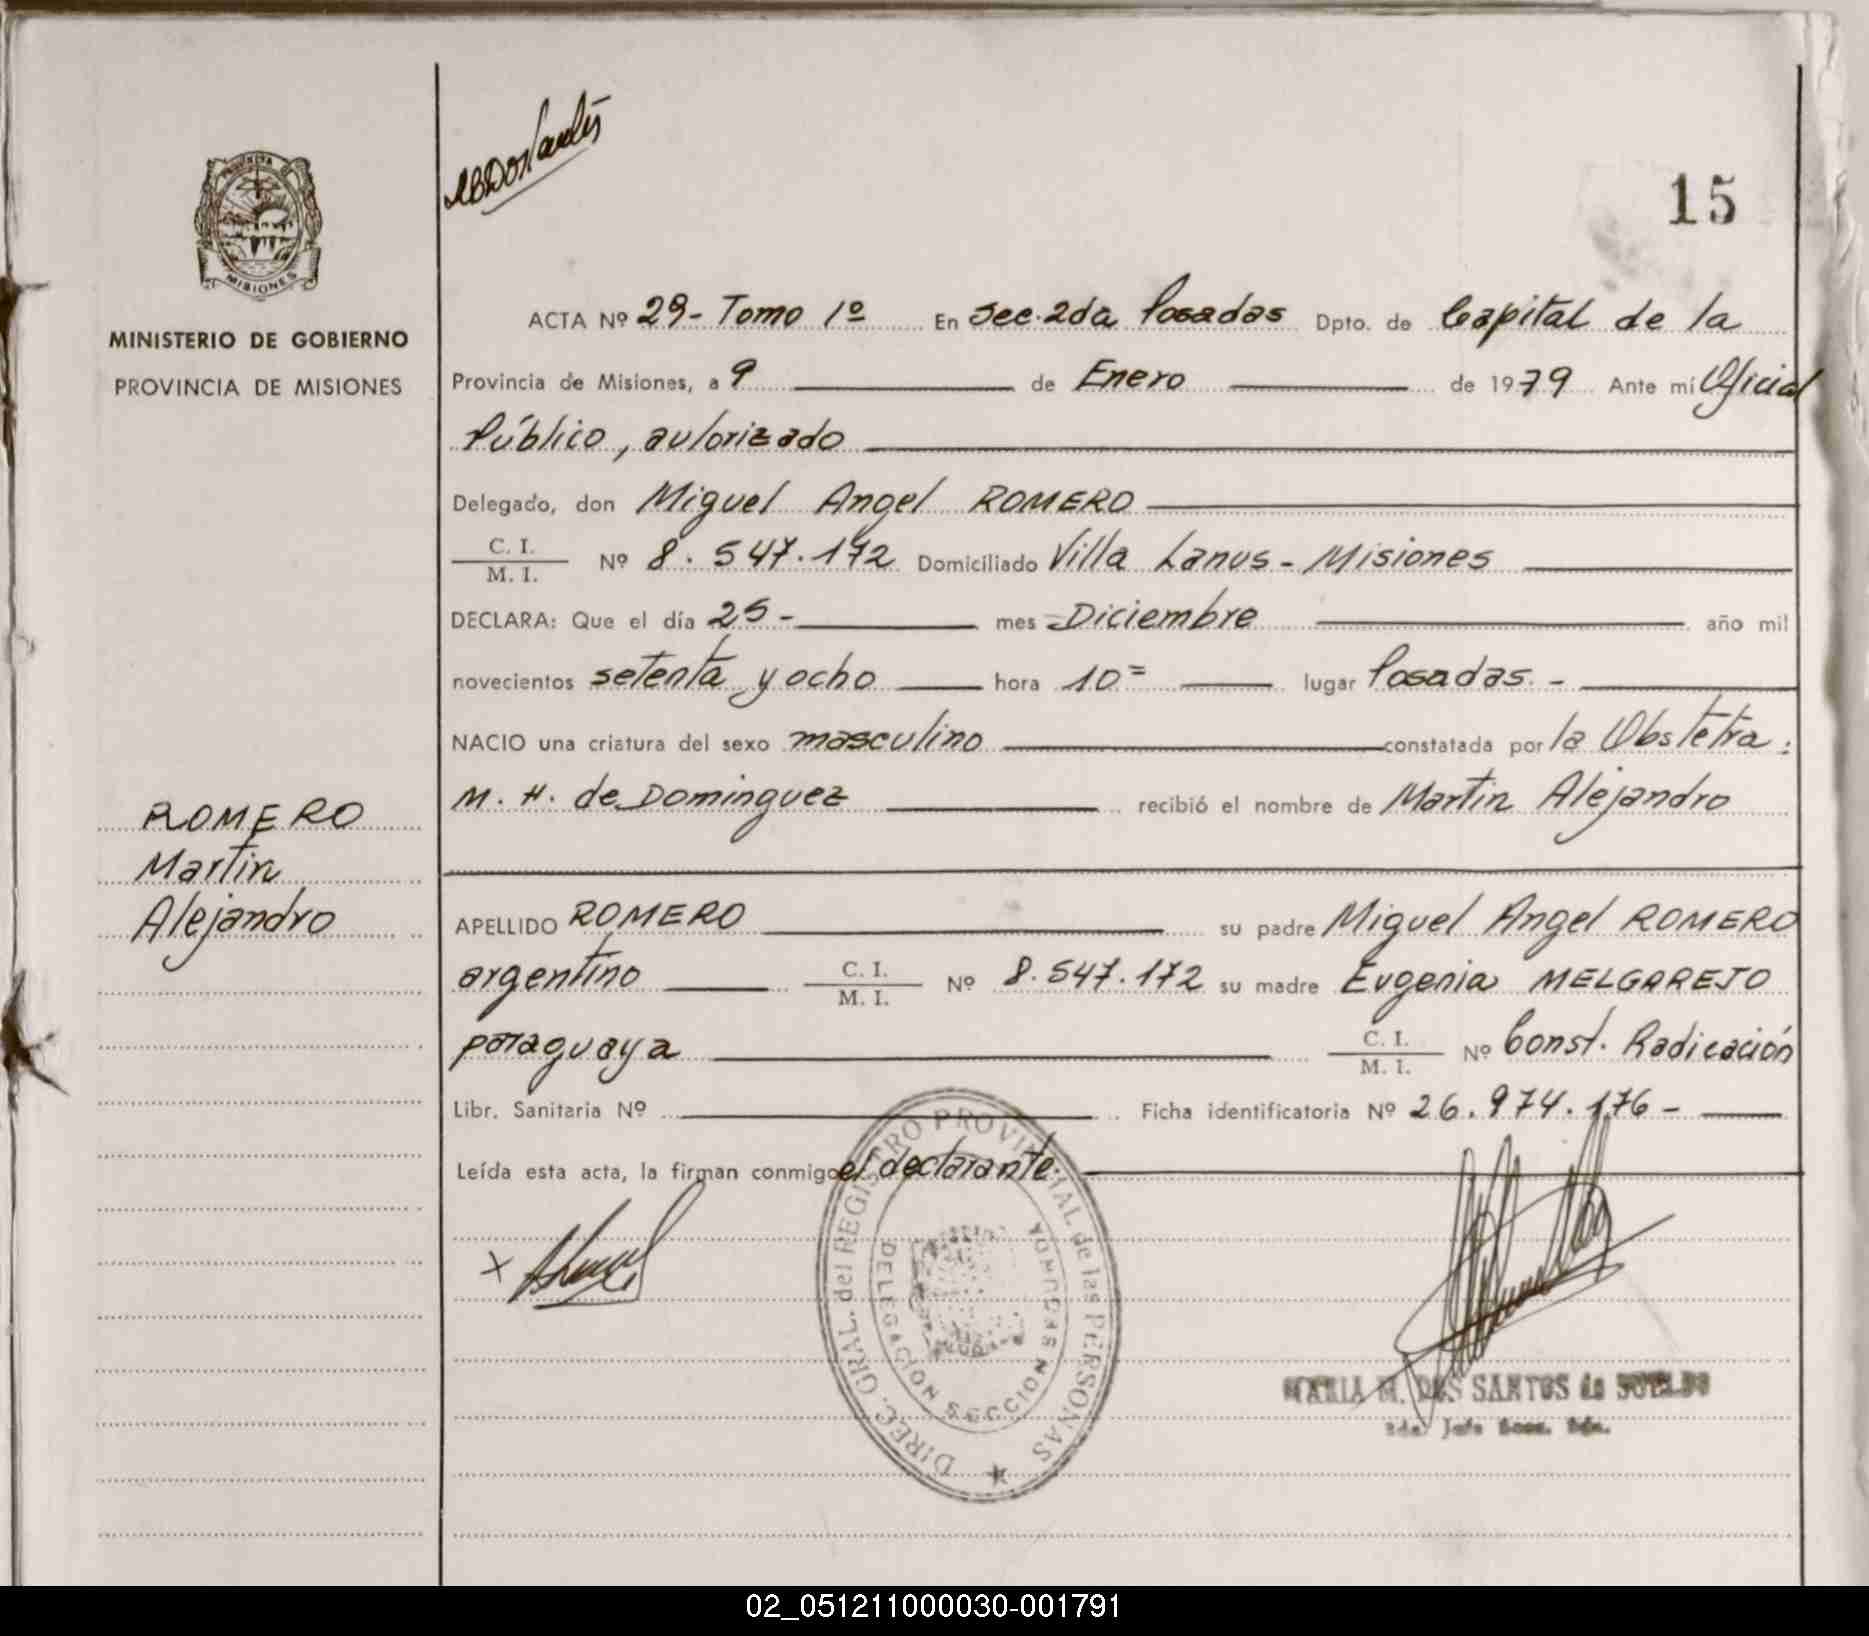 15
PROVINCIA DE
MISIONES
MINISTERIO DE GOBIERNO
PROVINCIA DE MISIONES
ROMERO
Martin
Alejandro
ACTA Nº 29- Tomo 1º En Sec. 2da Posadas Dpto. de Capital de la
Provincia de Misiones, a 9 de Enero de 1979 Ante mí Oficial
Público, autorizado
Delegado, don Miguel Angel ROMERO
C. I.
M. I.
Nº 8.547.172 Domiciliado Villa Lanus - Misiones
DECLARA: Que el día 25- mes Diciembre año mil
novecientos setenta y ocho hora 10= lugar Posadas.-
NACIO una criatura del sexo masculino constatada por la Obstetra:
M. H. de Dominguez recibió el nombre de Martin Alejandro
APELLIDO ROMERO su padre Miguel Angel ROMERO
argentino C. I. M. I. Nº 8.547.172 su madre Eugenia MELGAREJO
paraguaya C. I. M. I. Nº Const. Radicación
Libr. Sanitaria Nº Ficha identificatoria Nº 26.974.176-
Leída esta acta, la firman conmigo el declarante.
DIREC. GRAL. del REGISTRO PROVINCIAL de las PERSONAS
DELEGACION SECCION SEGUNDA
MARIA M. DOS SANTOS de
02_051211000030-001791